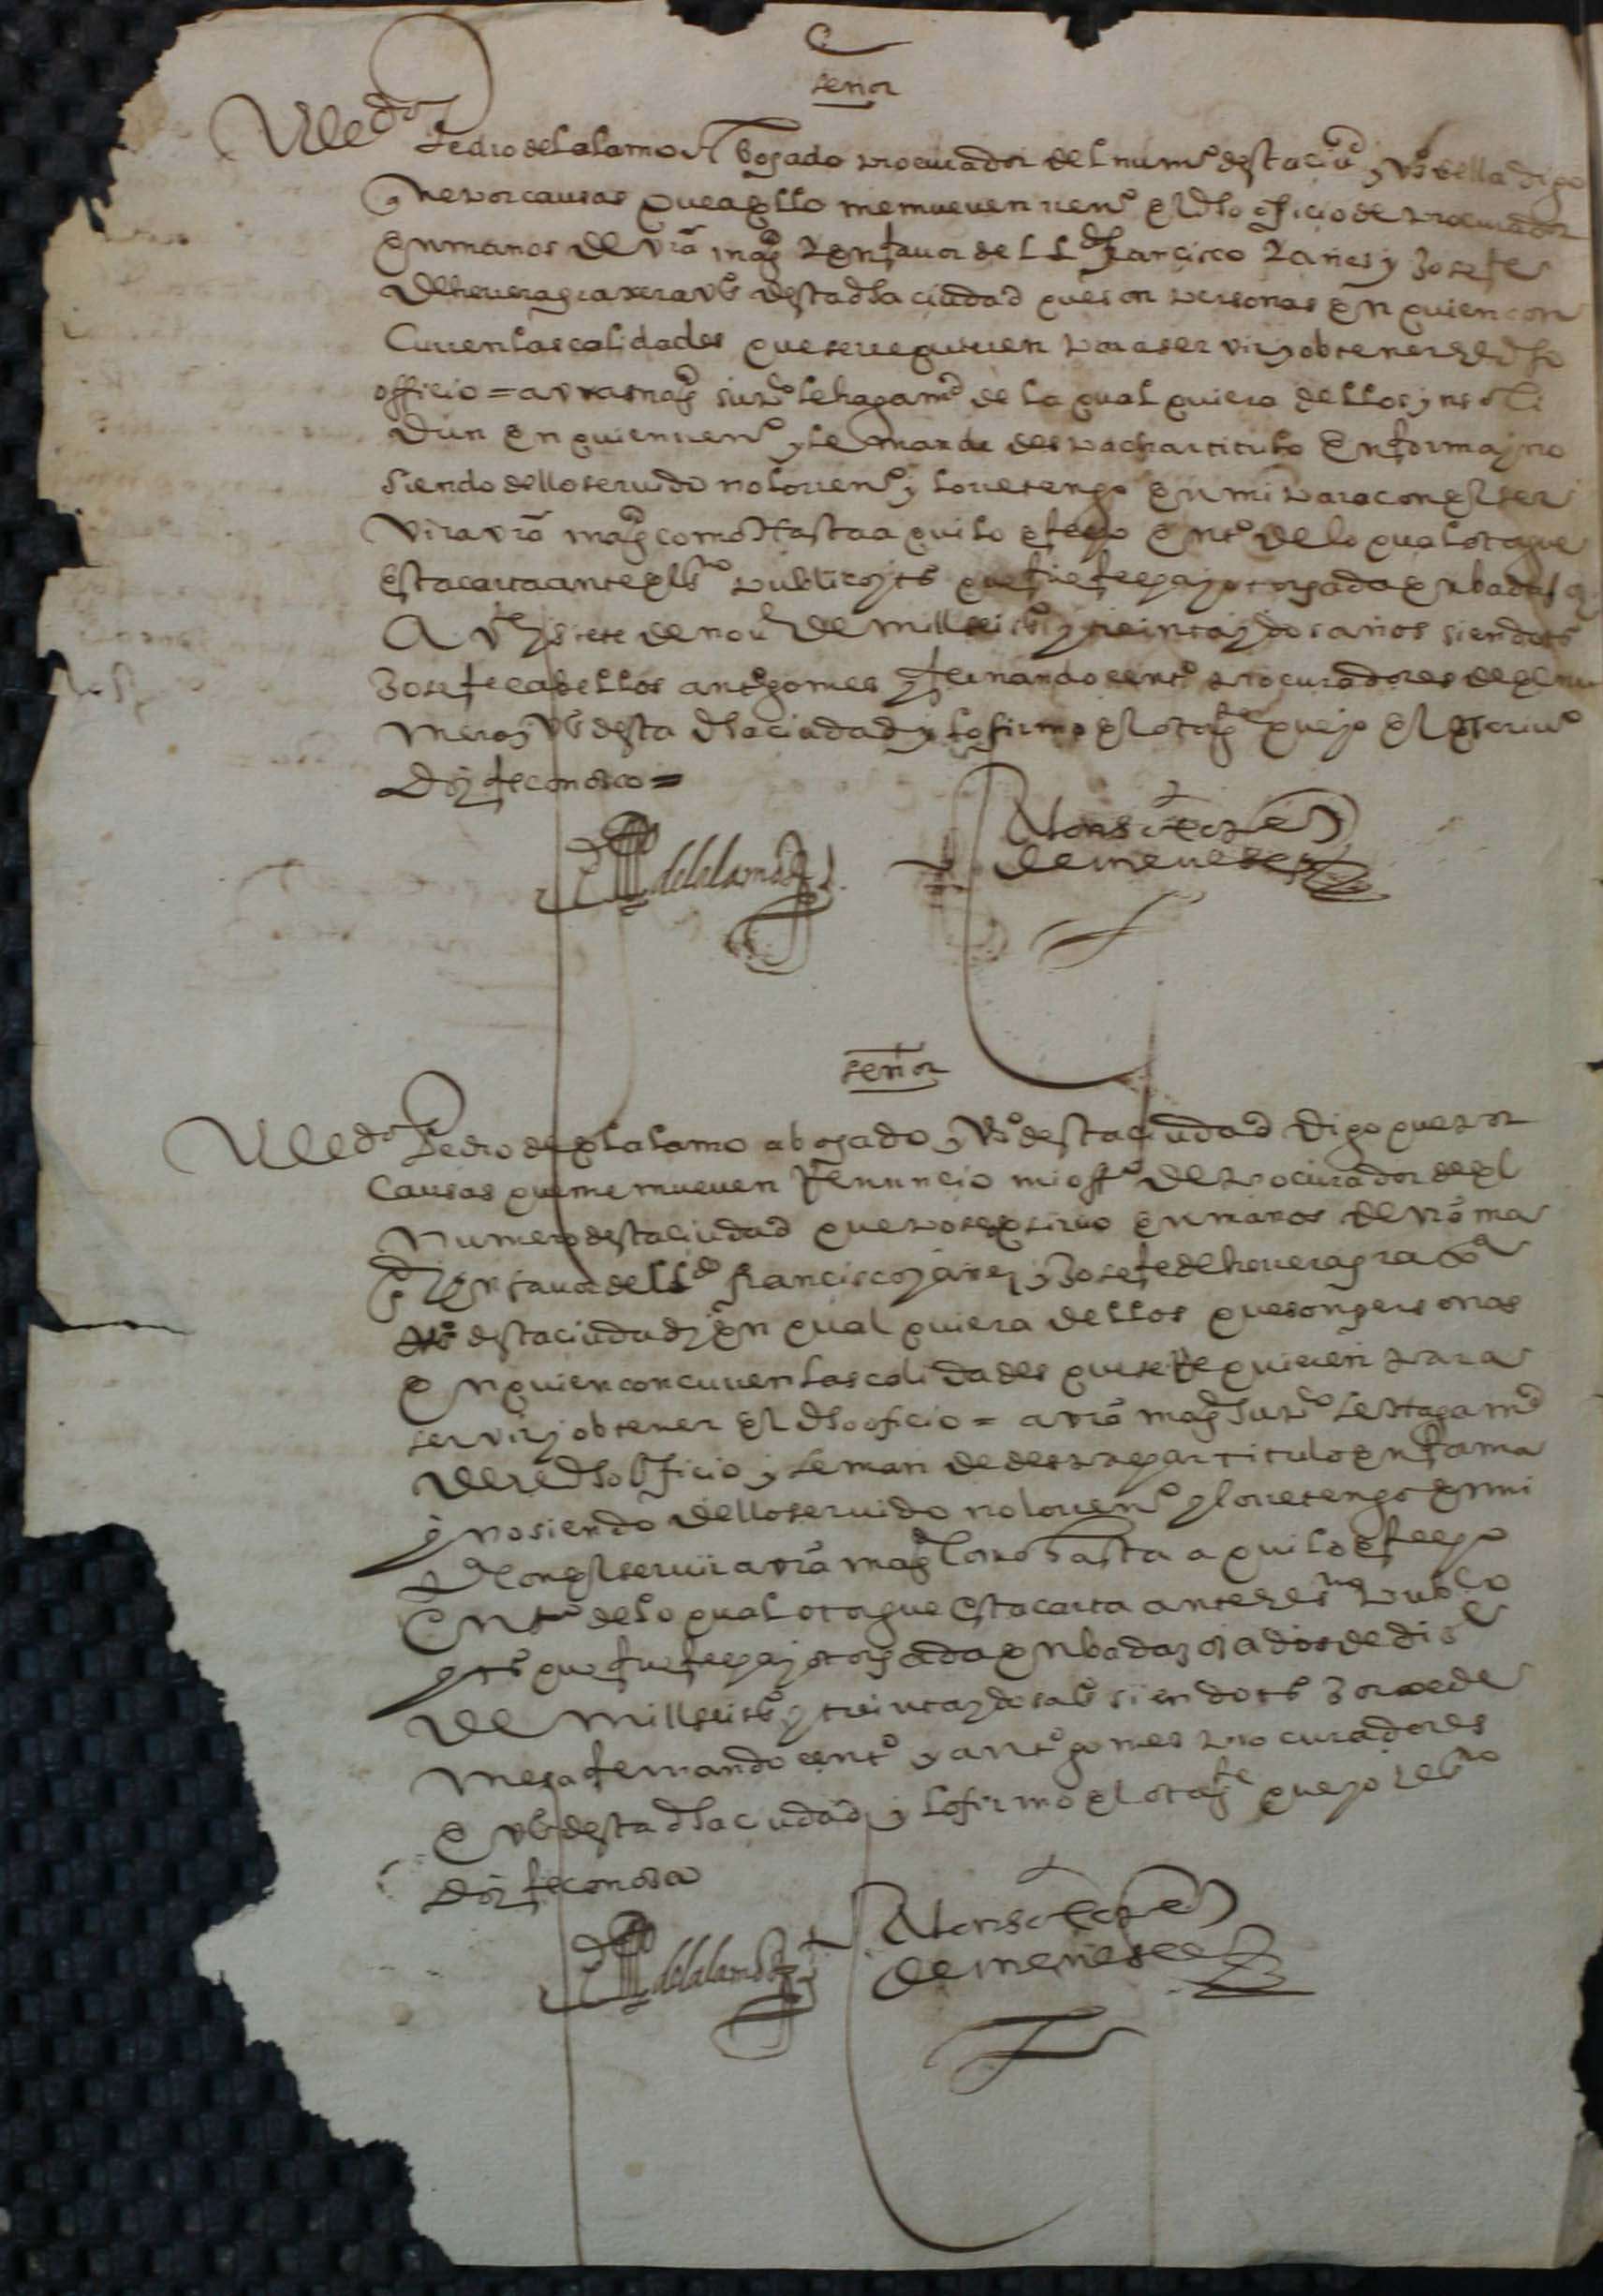 señor
El ldo Pedro del alamo Abogado procurador del numo desta ciud y vo della digo
que por causas que a ello me mueven reno el dho oficio de procurador
en manos de vra magd y en favor del Ldo francisco yañes y Josefe
de herrera graxera vos desta dha ciudad que son personas en quien con
Curren las calidades que se requieren para servir y obtener el dho
officio = a vra magd supco le haga md de lo qual quiera dellos yn soli
dun en quien reno y le mande despachar titulo en forma y no
siendo dello servido no lo reno y lo retengo en mi para con el ser
vir a vra magd como Hasta aqui lo e fecho en to de lo qual otorgue
esta carta ante el esno publico y tos que fue fecha y otorgada en badajoz
A veynte y siete de nove de mill seisos y treinta y dos años siendo tos
Josefe cabellos anto gomes y fernando cento procuradores del nu
mero y vos desta dha ciudad y lo firmo el otorgte que yo el escrivo
doy fe conosco =
P del alamo
Alonso lopes
de meneses
señor
El ldo Pedro del alamo abogado y vo desta ciudad Digo que por
causas que me mueven Renuncio mi offo de procurador del
numero desta ciudad que poseo sirvo en manos de vra ma
gd y en favor del Ldo francisco yañez y Josefe de herrera graxa
vos desta ciudad y en qual quiera dellos que son personas
en quien concurren las calidades que se Requieren para
servir y obtener el dho oficio = a vra magd supco le Haga md
del dho oficio y le man de despachar titulo en forma
y no siendo dello servido no lo reno y lo retengo en mi
Pa con el servir a vra magd como Hasta aqui lo e fecho
en to de lo qual otorgue esta carta ante el esno publico
y tos que fue fecha y otorgada en badajoz a dos de dise
de mill seisos y treinta y dos años siendo tos Jorxe de
mesa fernando cento y anto gomes procuradores
e vos desta dha ciudad y lo firmo el otorgte que yo el esno
doy fe conosco
P del alamo
Alonso lopes
de meneses